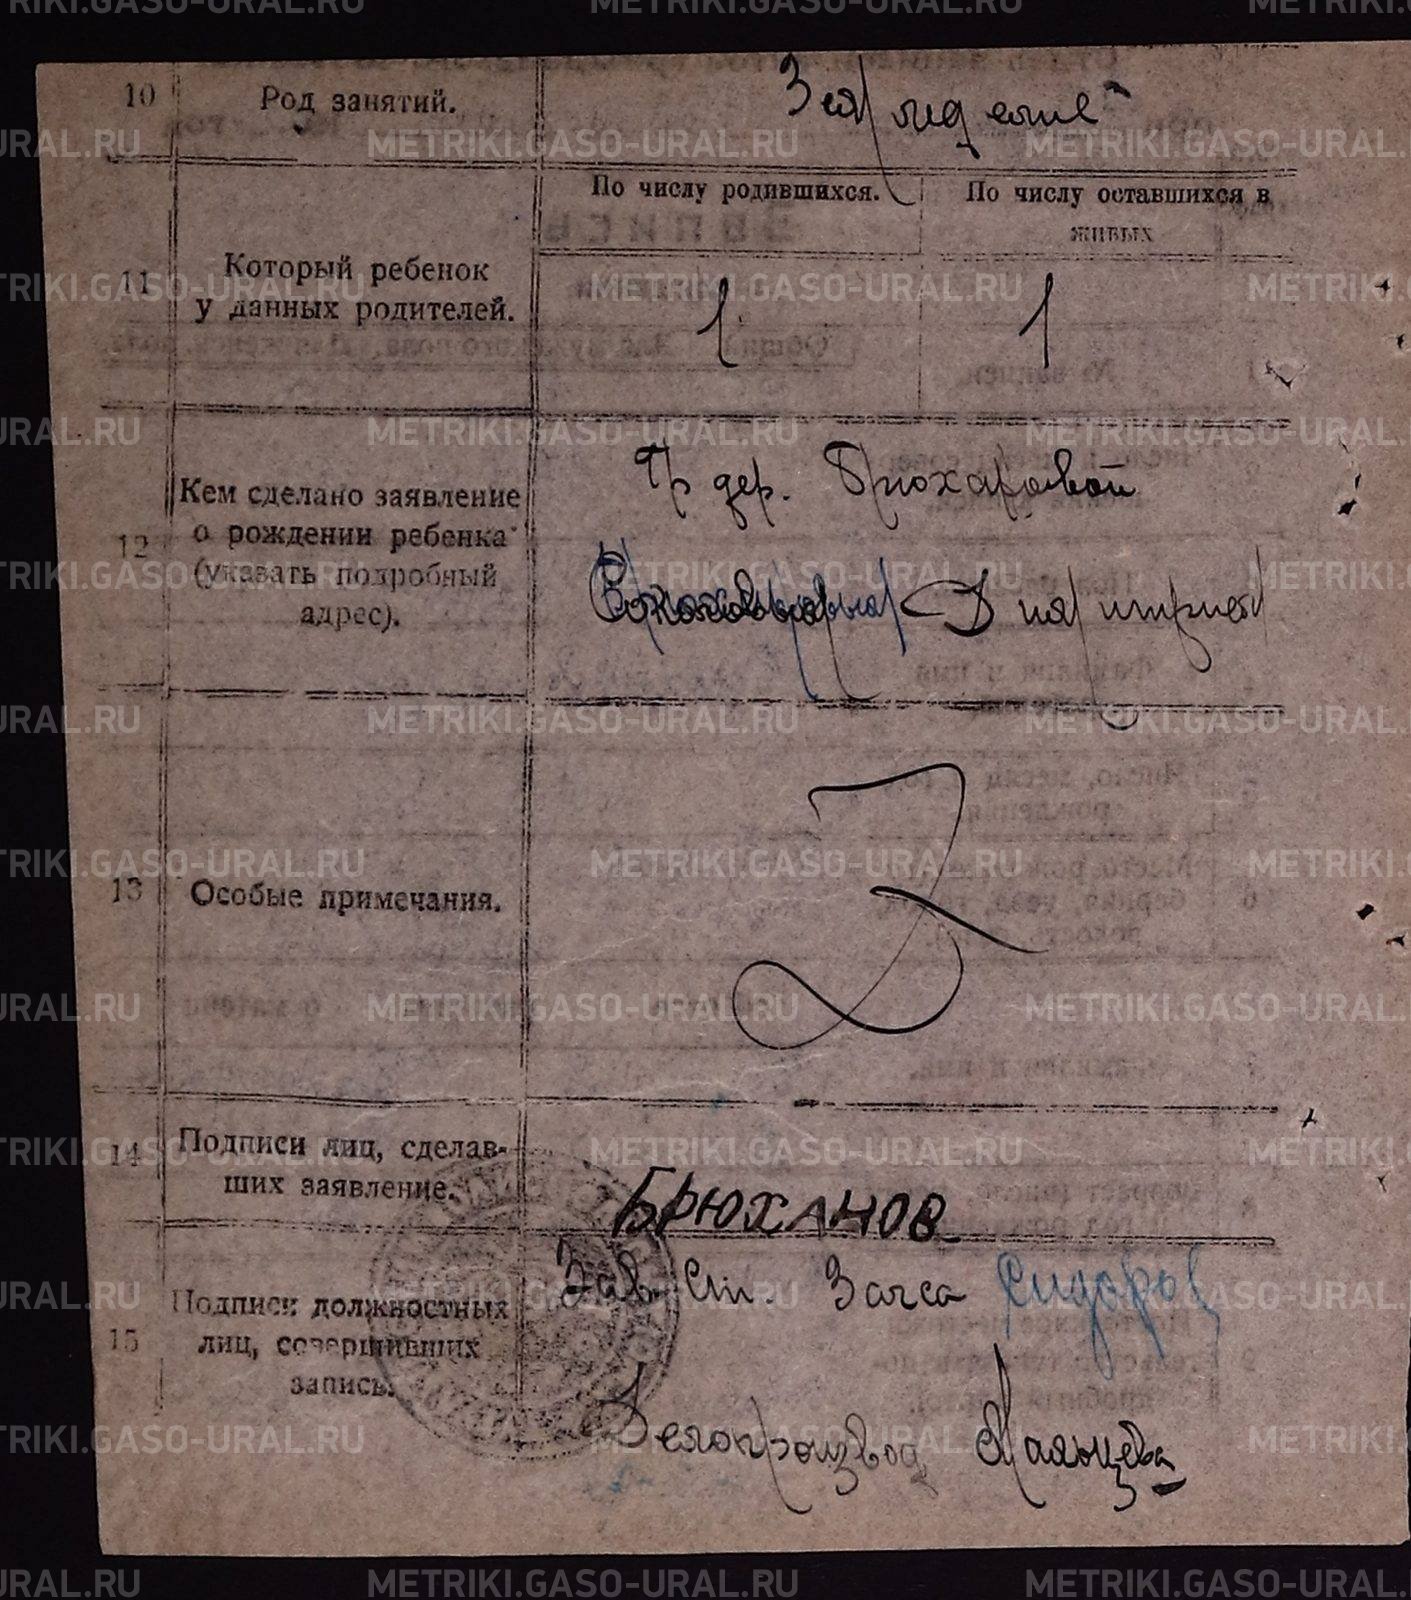 10 Род занятий. Земледелие
По числу родившихся. По числу оставшихся в живых
11 Который ребенок у данных родителей. 1 1
12 Кем сделано заявление о рождении ребенка (указать подробный адрес).
Гр дер. Брюхановой
Дмитрий
13 Особые примечания.
14 Подписи лиц, сделавших заявление.
БРЮХАНОВ
15 Подписи должностных лиц, совершивших запись.
Зав. Ст. Загса Сидоров
Делопроизвод Мальцева
METRIKI.GASO-URAL.RU